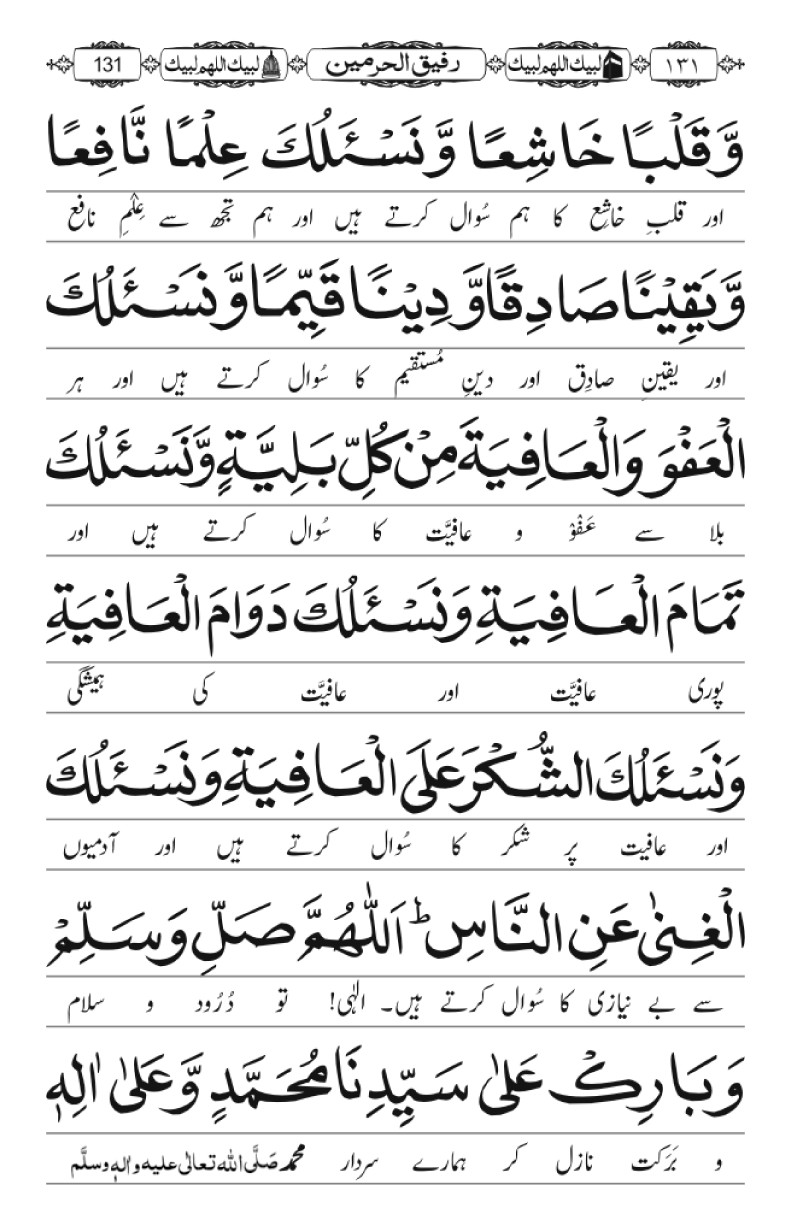 ۱۳۱ لبیک اللھم لبیک رفیق الحرمین لبیک اللھم لبیک 131
وَّ قَلْبًا خَاشِعًا وَّ نَسْـَٔلُكَ عِلْمًا نَّافِعًا
اور قلبِ خاشِع کا ہم سُوال کرتے ہیں اور ہم تجھ سے عِلْمِ نافع
وَّ يَقِيْنًا صَادِقًا وَّ دِيْنًا قَيِّمًا وَّ نَسْـَٔلُكَ
اور یقینِ صادِق اور دینِ مُستقیم کا سُوال کرتے ہیں اور ہر
الْعَفْوَ وَالْعَافِيَةَ مِنْ كُلِّ بَلِيَّةٍ وَّ نَسْـَٔلُكَ
بلا سے عَفْوْ و عافیَّت کا سُوال کرتے ہیں اور
تَمَامَ الْعَافِيَةِ وَ نَسْـَٔلُكَ دَوَامَ الْعَافِيَةِ
پوری عافیَّت اور عافیَّت کی ہمیشگی
وَ نَسْـَٔلُكَ الشُّكْرَ عَلَى الْعَافِيَةِ وَ نَسْـَٔلُكَ
اور عافیت پر شکر کا سُوال کرتے ہیں اور آدمیوں
الْغِنٰى عَنِ النَّاسِ ؕ اَللّٰهُمَّ صَلِّ وَ سَلِّمْ
سے بے نیازی کا سُوال کرتے ہیں۔ الٰہی! تو دُرُود و سلام
وَ بَارِكْ عَلٰى سَيِّدِنَا مُحَمَّدٍ وَّ عَلٰى اٰلِهٖ
و بَرَکت نازل کر ہمارے سردار محمد صَلَّى اللہ تعالٰی علیہ واٰلہٖ وسلَّم